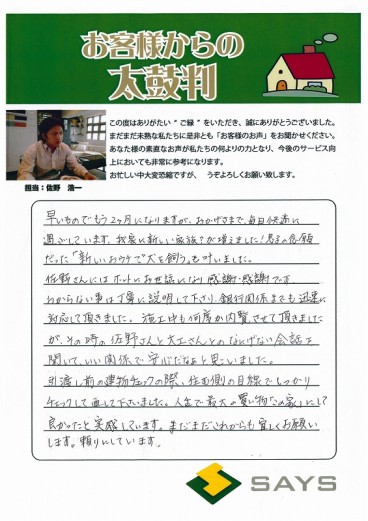 お客様からの
太鼓判
この度はありがたい“ご縁”をいただき、誠にありがとうございました。
まだまだ未熟な私たちに是非とも「お客様のお声」をお聞かせください。
あなた様の素直なお声が私たちの何よりの力となり、今後のサービス向
上においても非常に参考になります。
お忙しい中大変恐縮ですが、うぞよろしくお願い致します。
担当：佐野 浩一
早いものでもう2ヶ月になりますが、おかげさまで、毎日快適に
過ごしています。我家に新しい家族？が増えました！息子の念願
だった「新しいおウチで犬を飼う」も叶いました。
佐野さんにはホントにお世話になり感謝・感謝です
わからない事は丁寧に説明して下さり、銀行関係までも迅速に
対応して頂きました。施工中も何度か内覧させて頂きました
が、その時の佐野さんと大工さんとのなにげない会話を
聞いて、いい関係で安心だなぁと思いました。
引渡し前の建物チェックの際、住む側の目線でしっかり
チェックして直して下さいました。人生で最大の買い物「この家」にして
良かったと実感しています。まだまだこれからも宜しくお願い
します。頼りにしています。
SAYS